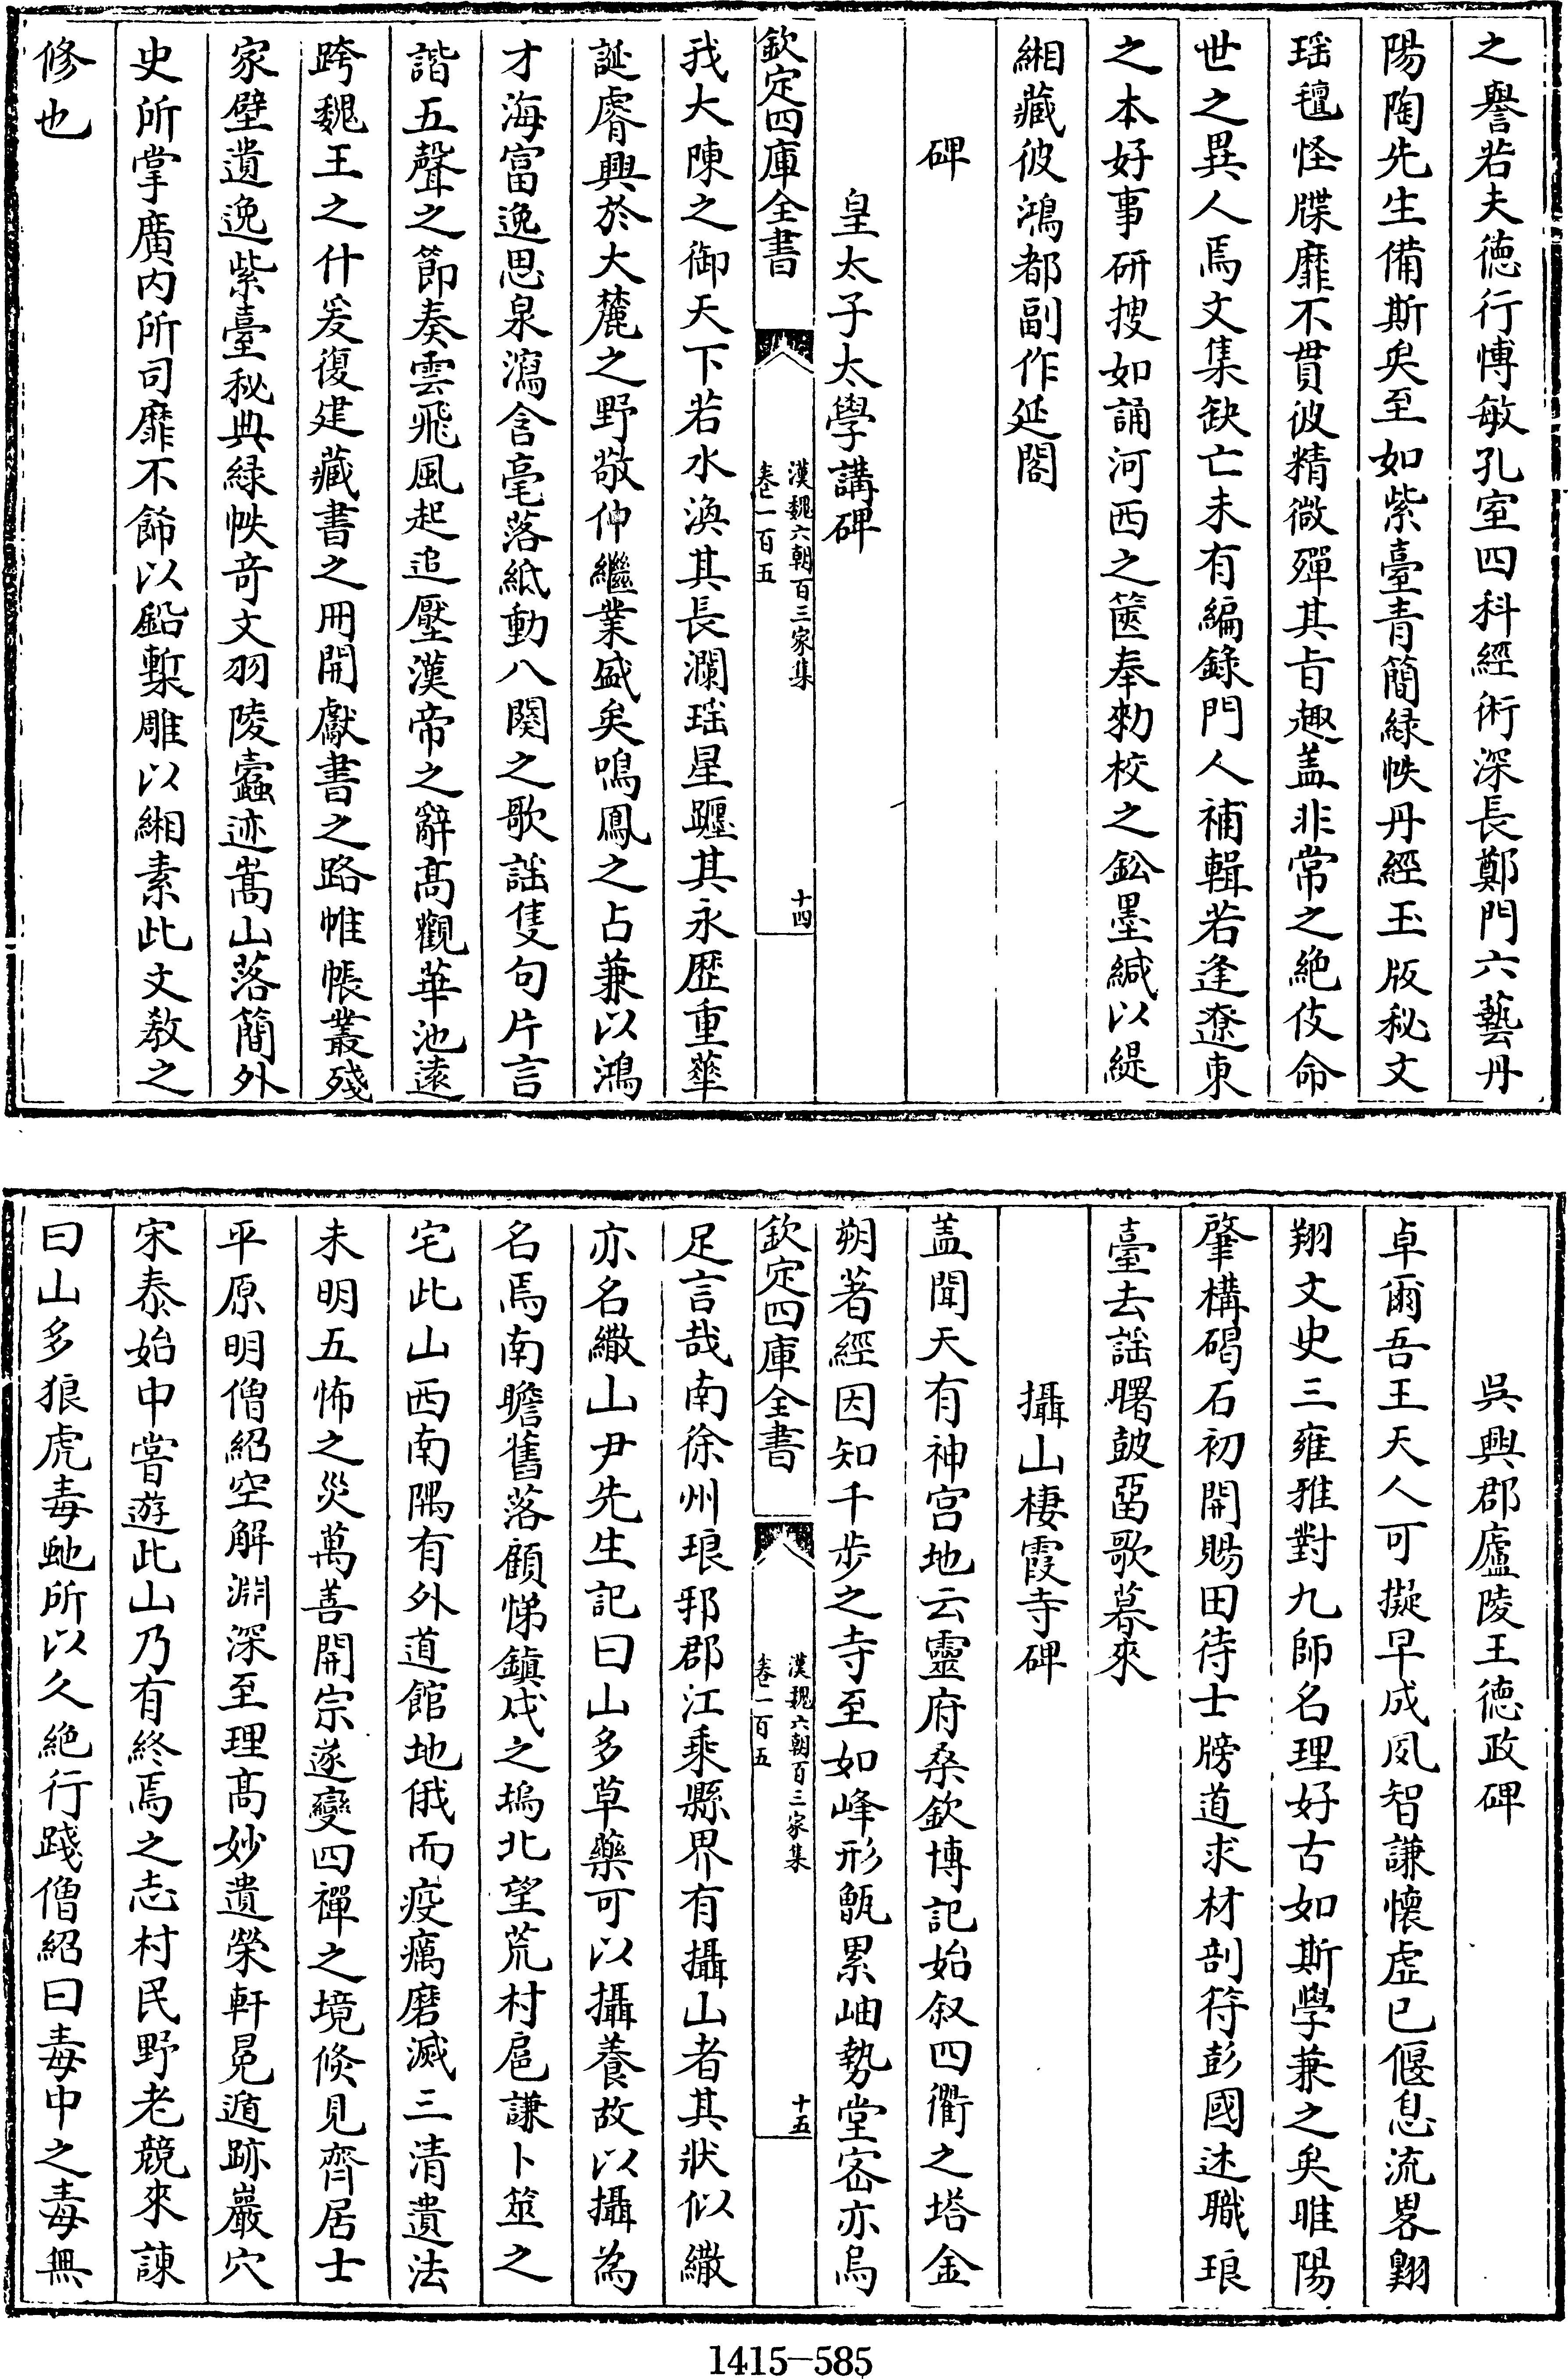 之譽若夫徳行博敏孔室四科經術深長鄭門六藝丹
陽陶先生備斯矣至如紫臺青簡緑帙丹經玉版秘文
瑶氊怪牒靡不貫彼精微殫其㫖趣蓋非常之絶伎命
世之異人焉文集缺亡未有編録門人補輯若逢遼東
之本好事研搜如誦河西之篋奉勑校之鈆墨緘以緹
緗藏彼鴻都副作延閣
碑
皇太子太學講碑
欽定四庫全書
漢魏六朝百三家集
卷一百五
十四
我大陳之御天下若水渙其長瀾瑶星躔其永歴重華
誕睿興於大麓之野敬仲繼業盛矣鳴鳳之占兼以鴻
才海富逸思泉瀉含毫落紙動八闋之歌謡隻句片言
諧五聲之節奏雲飛風起追壓漢帝之辭髙觀華池遠
跨魏王之什爰復建藏書之冊開獻書之路帷帳叢殘
家壁遺逸紫臺秘典緑帙竒文羽陵蠧迹嵩山落簡外
史所掌廣内所司靡不飾以鉛槧雕以緗素此文教之
修也
吳興郡廬陵王徳政碑
卓爾吾王天人可擬早成夙智謙懷虚已偃息流畧翺
翔文史三雍雅對九師名理好古如斯學兼之矣睢陽
肇構碣石初開賜田待士牓道求材剖符彭國述職琅
臺去謡曙鼓畱歌暮來
攝山棲霞寺碑
蓋聞天有神宫地云靈府桑欽博記始叙四衢之塔金
朔著經因知千步之寺至如峰形甑累岫勢堂宻亦烏
足言哉南徐州琅邪郡江乘縣界有攝山者其狀似繖
亦名繖山尹先生記曰山多草藥可以攝養故以攝為
名焉南瞻舊落顧悌鎮戍之塢北望荒村扈謙卜筮之
宅此山西南隅有外道館地俄而疫癘磨滅三清遺法
未明五怖之災萬善開宗遂變四禪之境倐見齊居士
平原明僧紹空解淵深至理髙妙遺榮軒冕遁跡巖穴
宋泰始中嘗遊此山乃有終焉之志村民野老競來諫
曰山多狼虎毒虵所以久絶行踐僧紹曰毒中之毒無
欽定四庫全書
漢魏六朝百三家集
卷一百五
十五
1415-585